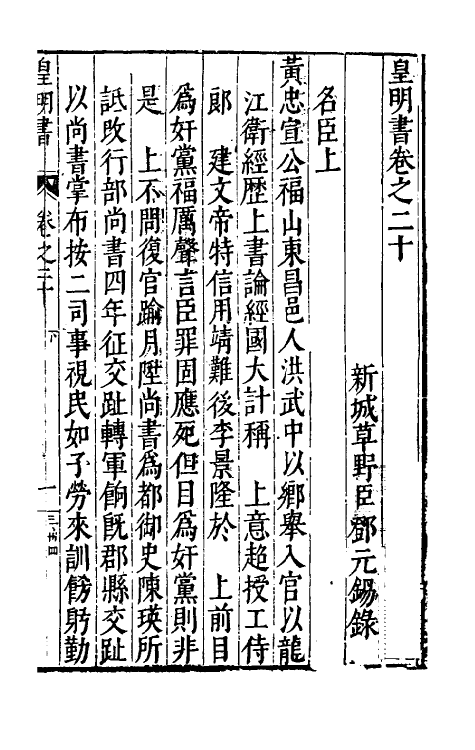 皇明書卷之二十
新城草野臣鄧元錫錄
名臣上
黃忠宣公福山東昌邑人洪武中以鄉舉入官以龍
江衛經歷上書論經國大計稱　上意超授工侍
郞　建文帝特信用靖難後李景隆於　上前目
為奸黨福厲聲言臣罪固應死但目為奸黨則非
是　上不問復官踰月陞尚書為都御史陳瑛所
詆改行部尚書四年征交趾轉軍餉旣郡縣交趾
以尚書掌布按二司事視民如子勞來訓飭躬勤
皇明書
卷之二十
一